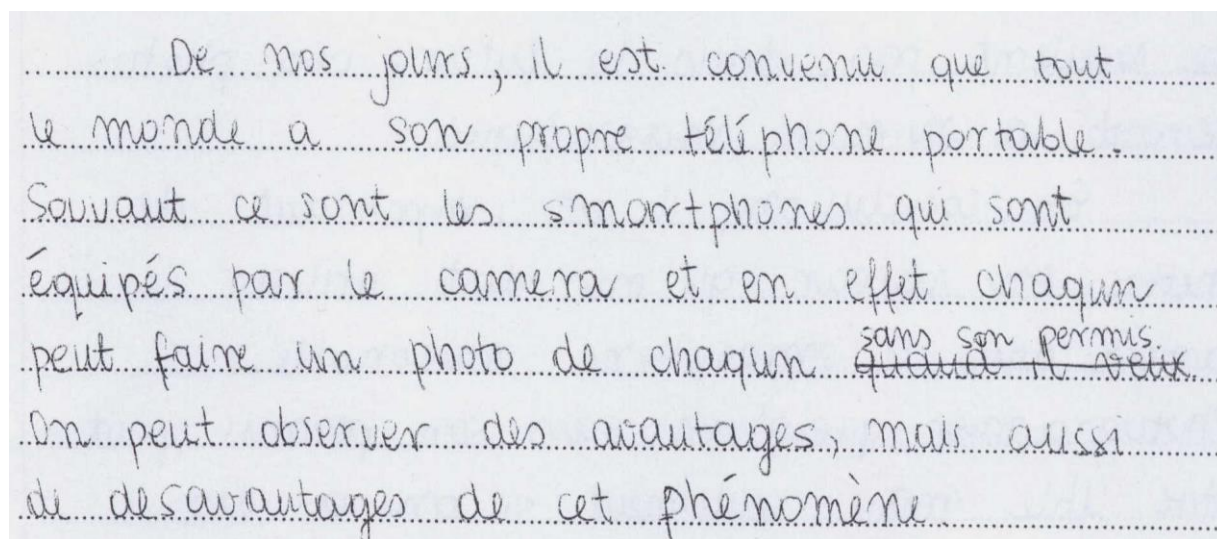 De nos jours, il est convenu que tout
le monde a son propre téléphone portable.
Souvant ce sont les smartphones qui sont
équipés par le camera et en effet chaqun
peut faire un photo de chaqun sans son permis.
quand il veux
On peut observer des avantages, mais aussi
de desavantages de cet phénomène.